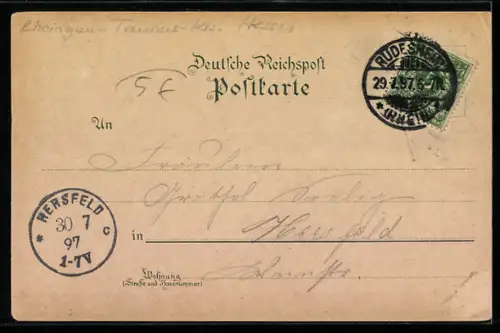 Rheingau-Taunus-Krs. Hessen
Deutsche Reichspost
Postkarte
5 £
RÜDESHEIM
29.7.97. 6-7N.
* (RHEIN) *
An
Fräulein
Grethel Seelig
in Hersfeld
HERSFELD
30 7
97
1-7V
* c
Wohnung
(Straße und Hausnummer)